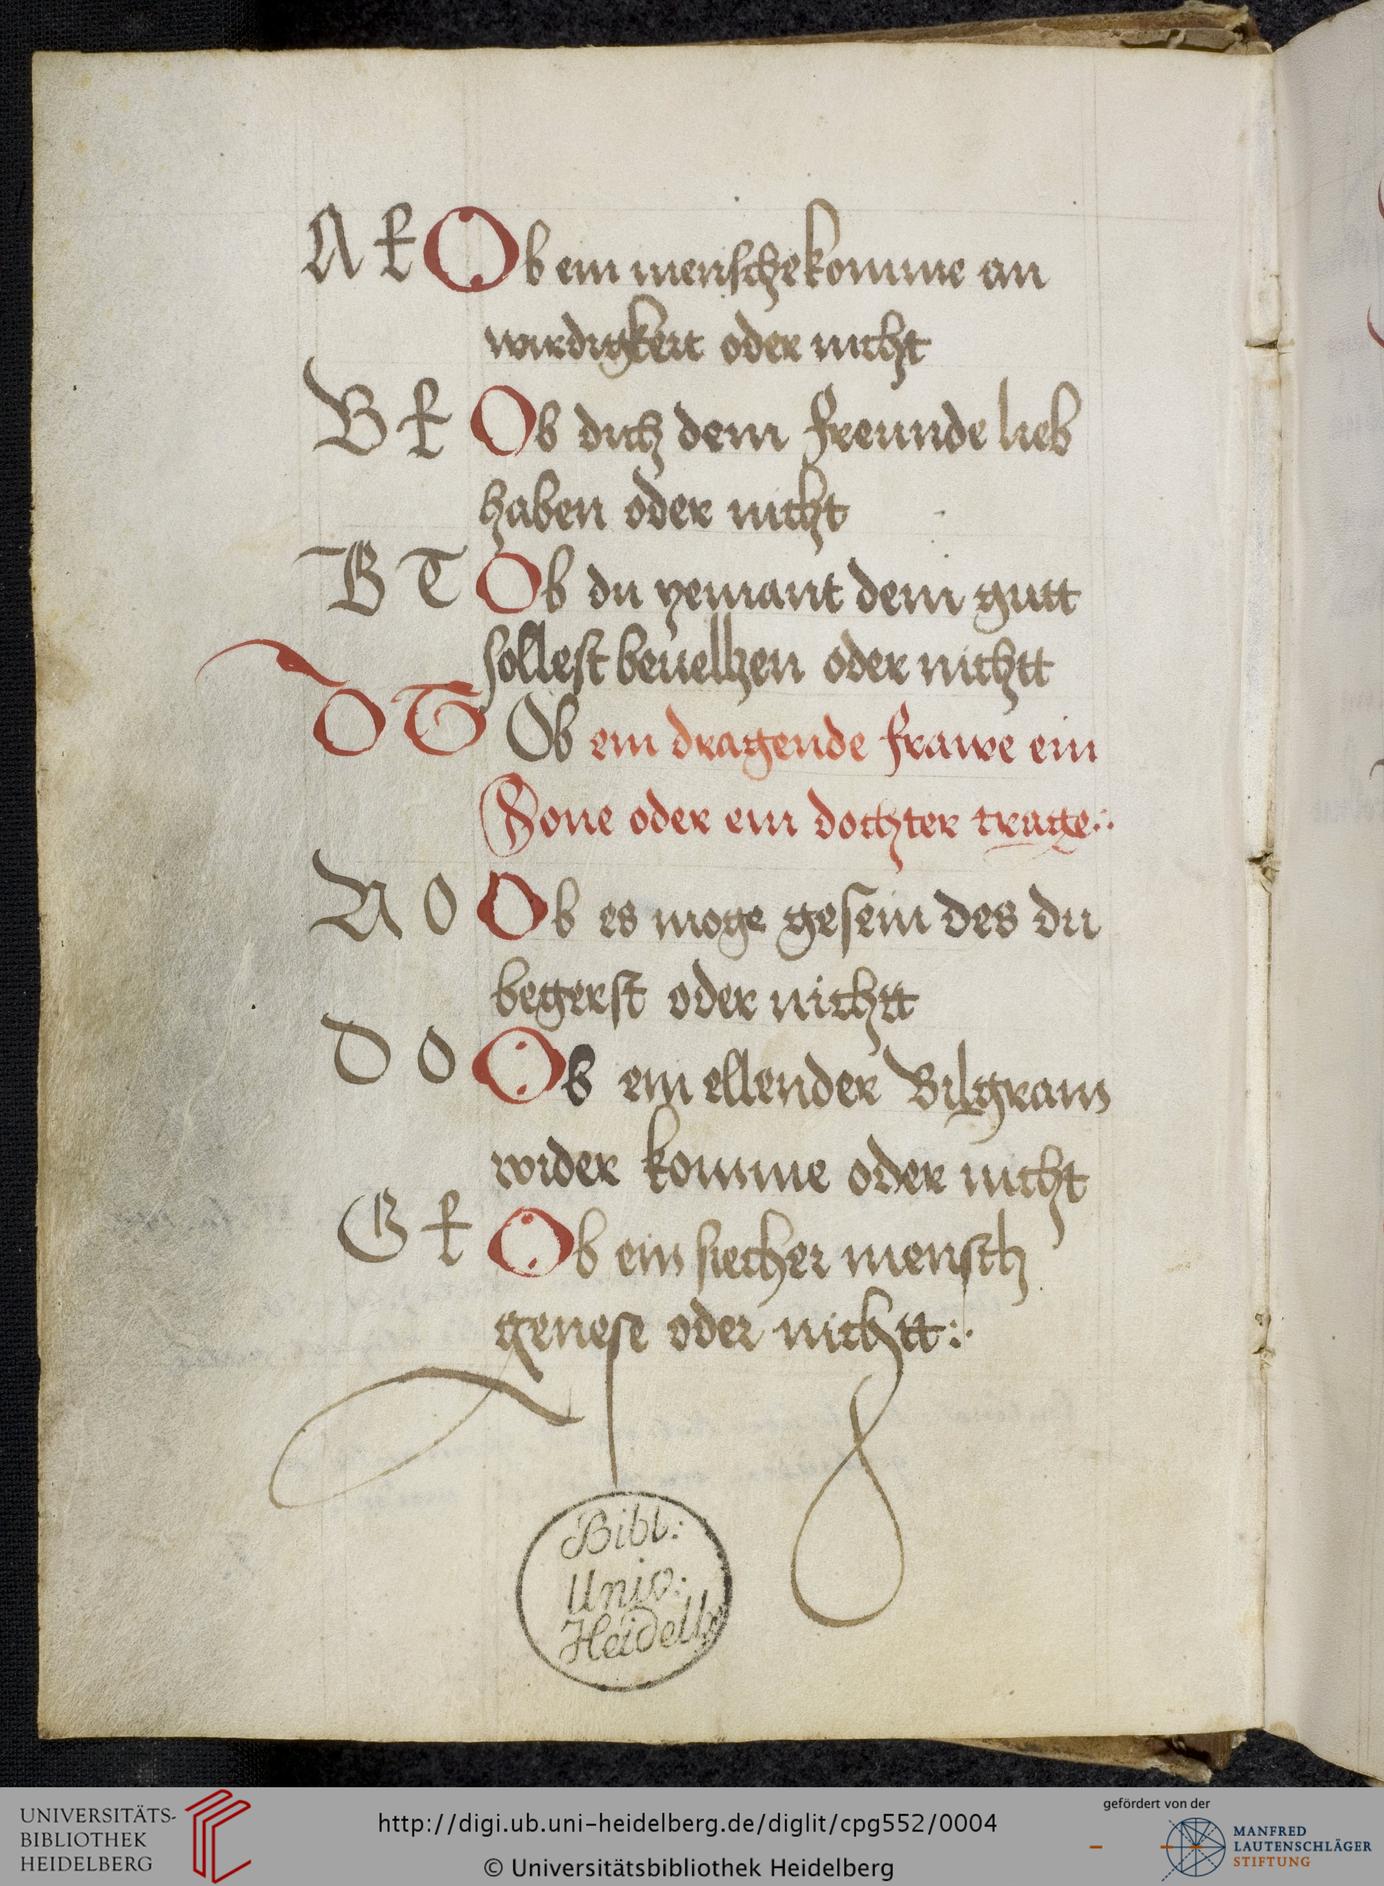 A ł Ob ein mensche komme an
wirdigkeit oder nicht
B ł Ob dich dein freunde lieb
haben oder nicht
B T Ob du yemant dein gutt
sollest beuelhen oder nichtt
D T Ob ein dragende frawe ein
Sone oder ein dochter trage
N O Ob es moge gesein des du
begerst oder nichtt
D O Ob ein ellender Bilgram
wider komme oder nicht
G ł Ob ein siecher mensch
genese oder nichtt
Bibl:
Univ:
Heidelb:
UNIVERSITÄTS-
BIBLIOTHEK
HEIDELBERG
http://digi.ub.uni-heidelberg.de/diglit/cpg552/0004
© Universitätsbibliothek Heidelberg
gefördert von der
MANFRED
LAUTENSCHLÄGER
STIFTUNG